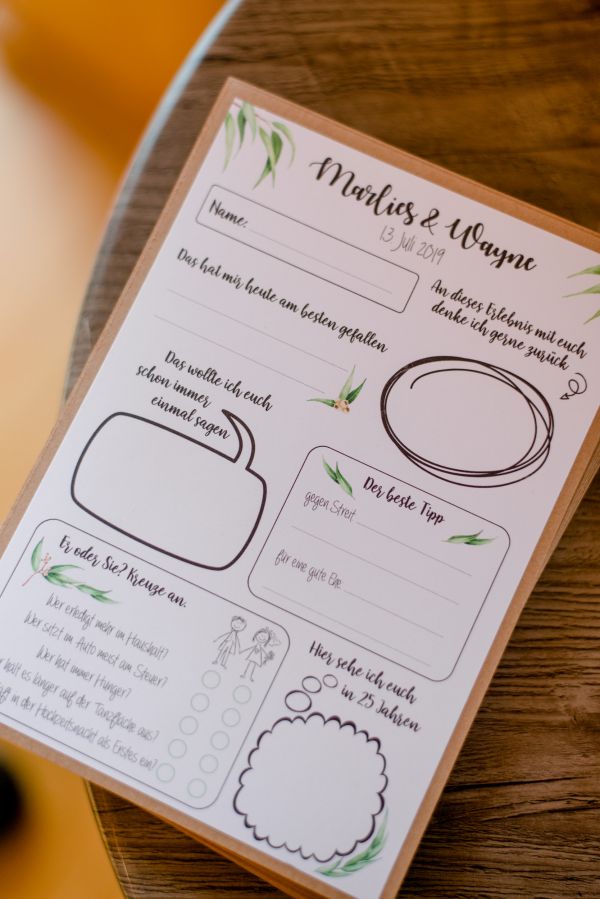 Marlies & Wayne
13. Juli 2019
Name:
Das hat mir heute am besten gefallen
An dieses Erlebnis mit euch
denke ich gerne zurück
Das wollte ich euch
schon immer
einmal sagen
Der beste Tipp
gegen Streit
für eine gute Ehe
Er oder Sie? Kreuze an.
Wer erledigt mehr im Haushalt?
Wer sitzt im Auto meist am Steuer?
Wer hat immer Hunger?
hält es länger auf der Tanzfläche aus?
in der Hochzeitsnacht als Erstes ein?
Hier sehe ich euch
in 25 Jahren